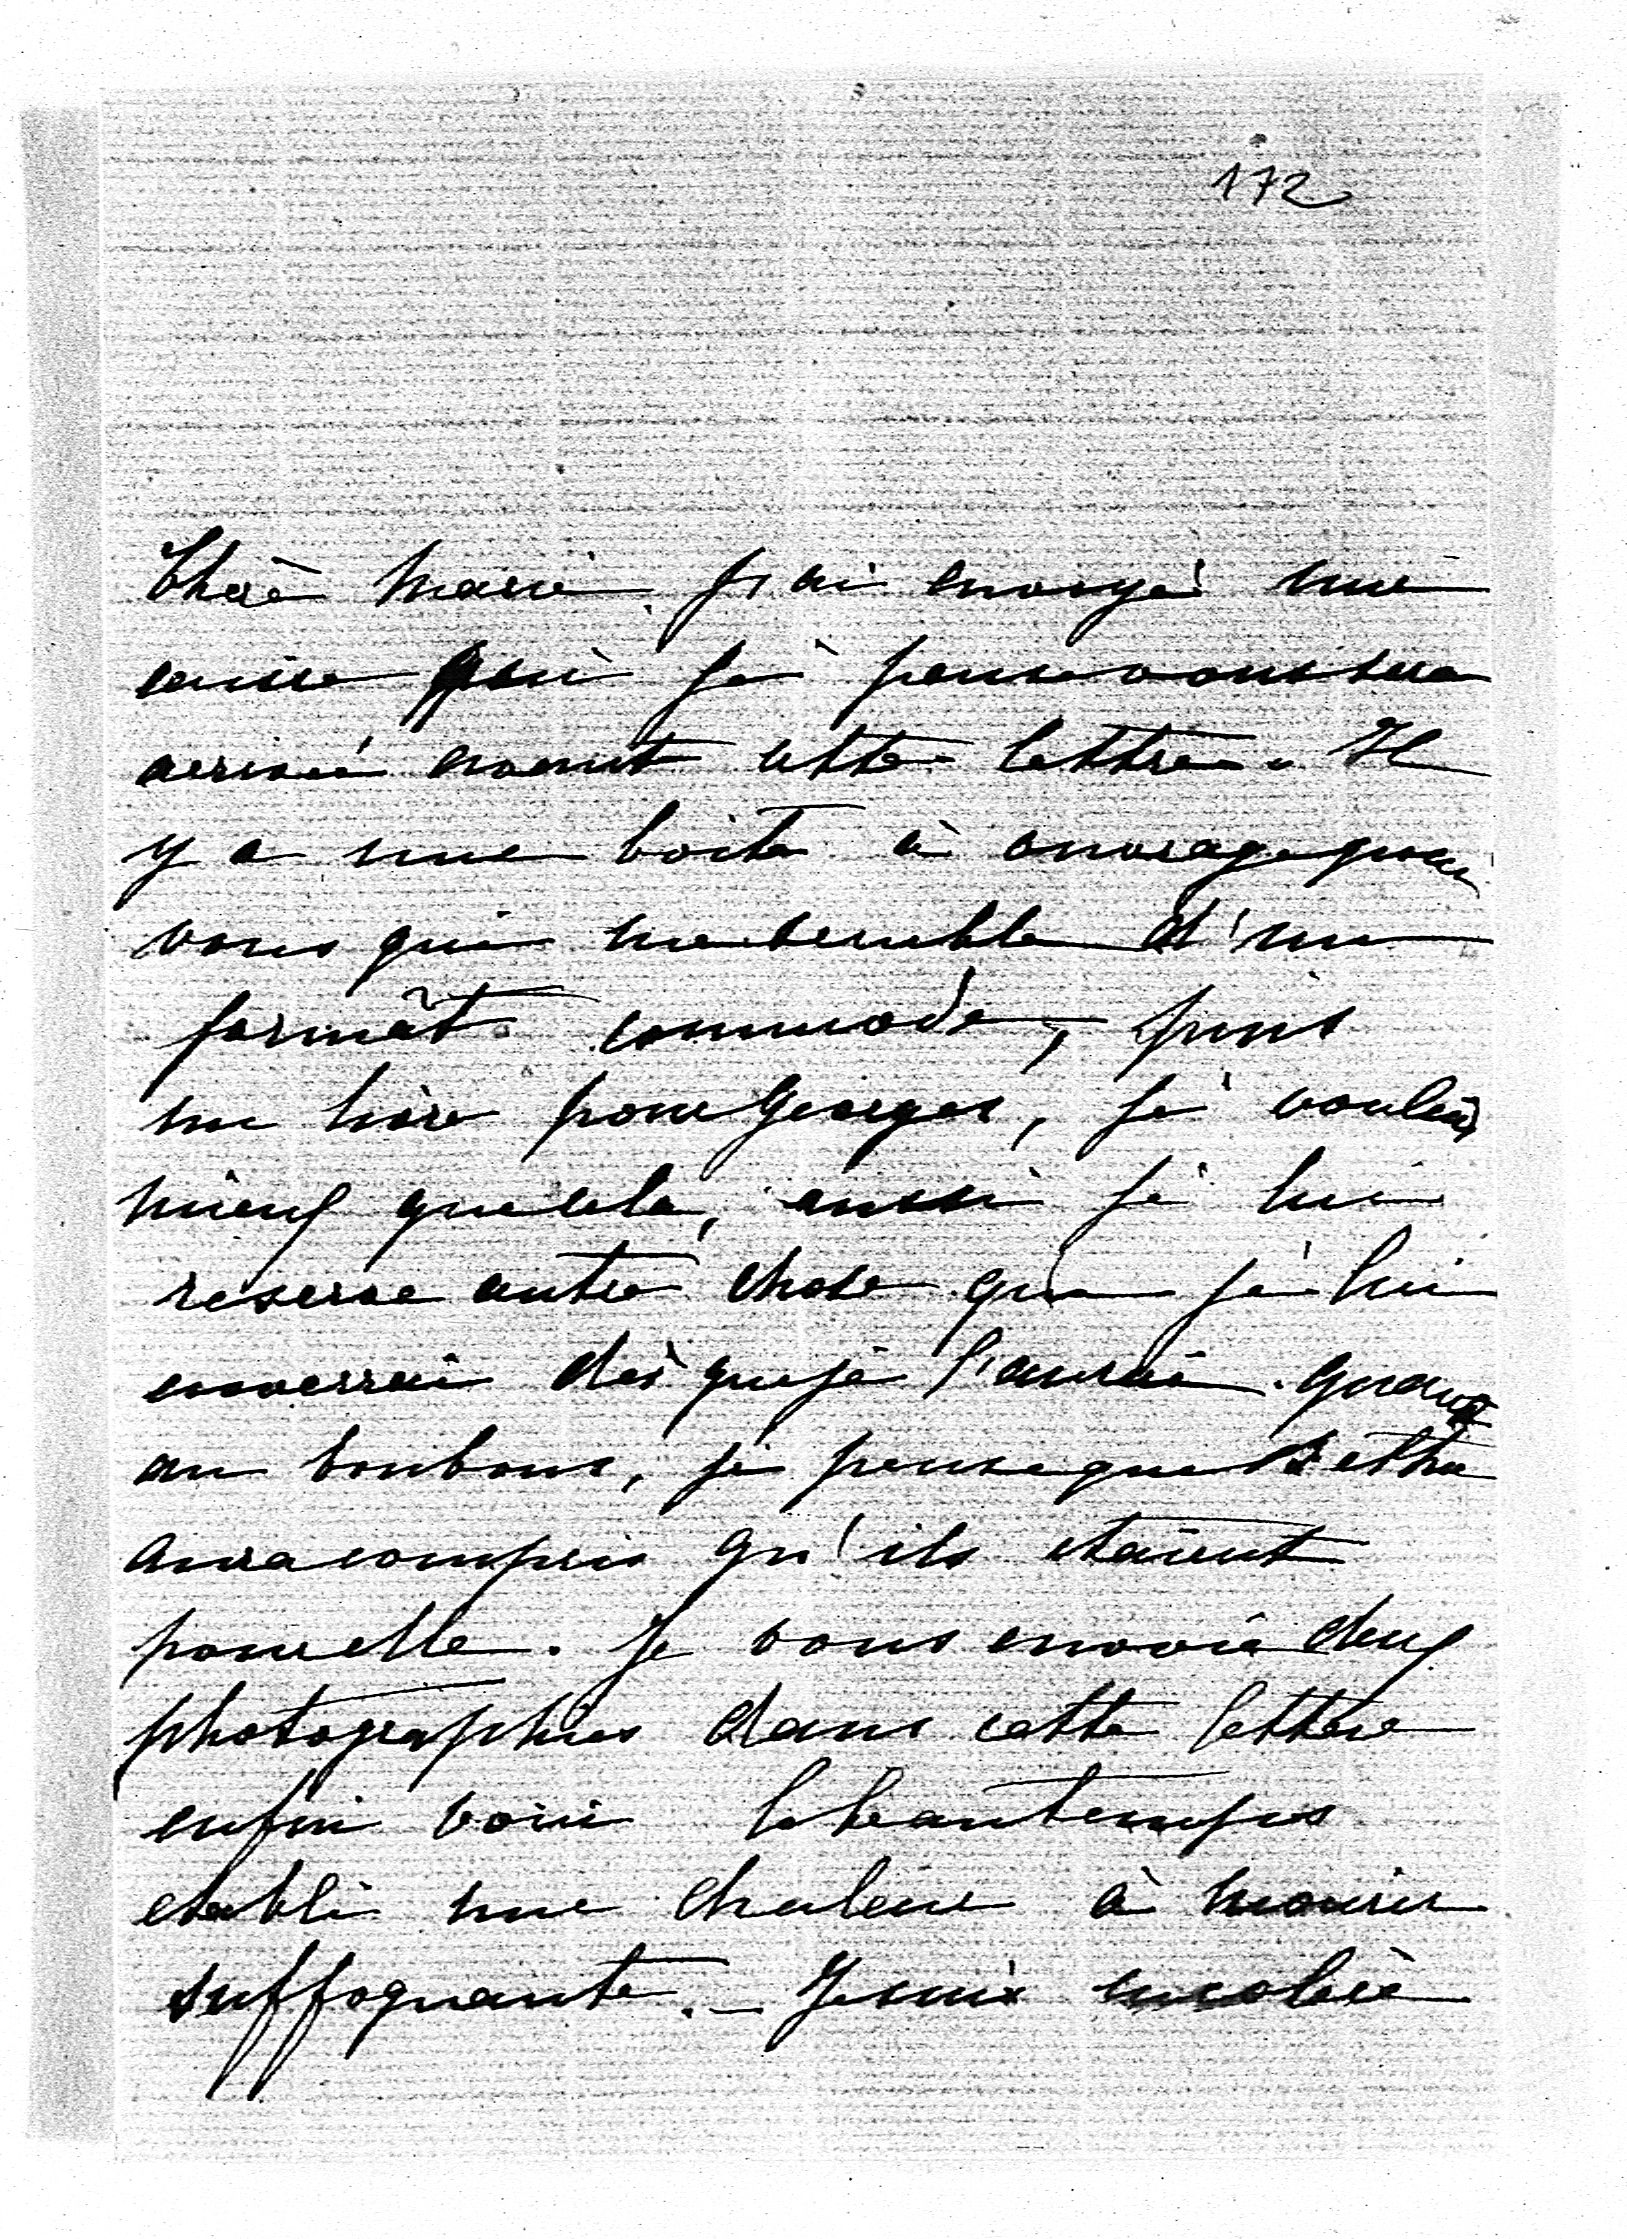 172
Chère Marie. J'ai envoyé une
caisse qui je pense vous sera
arrivée avant cette lettre. Il
y a une boite à ouvrage pour
vous qui me semble d'un
format commode, puis
un livre pour Georges, je voulais
mieux que cela, aussi je lui
reserve autre chose que je lui
enverrai dès que je l'aurai. Quand
au bonbons, je pense que Betha
aura compris qu'ils etaient
pour elle. Je vous envoie deux
photographies dans cette lettre
enfin voici le beau temps
etabli une chaleur à mourir
suffoquante. _ Je suis